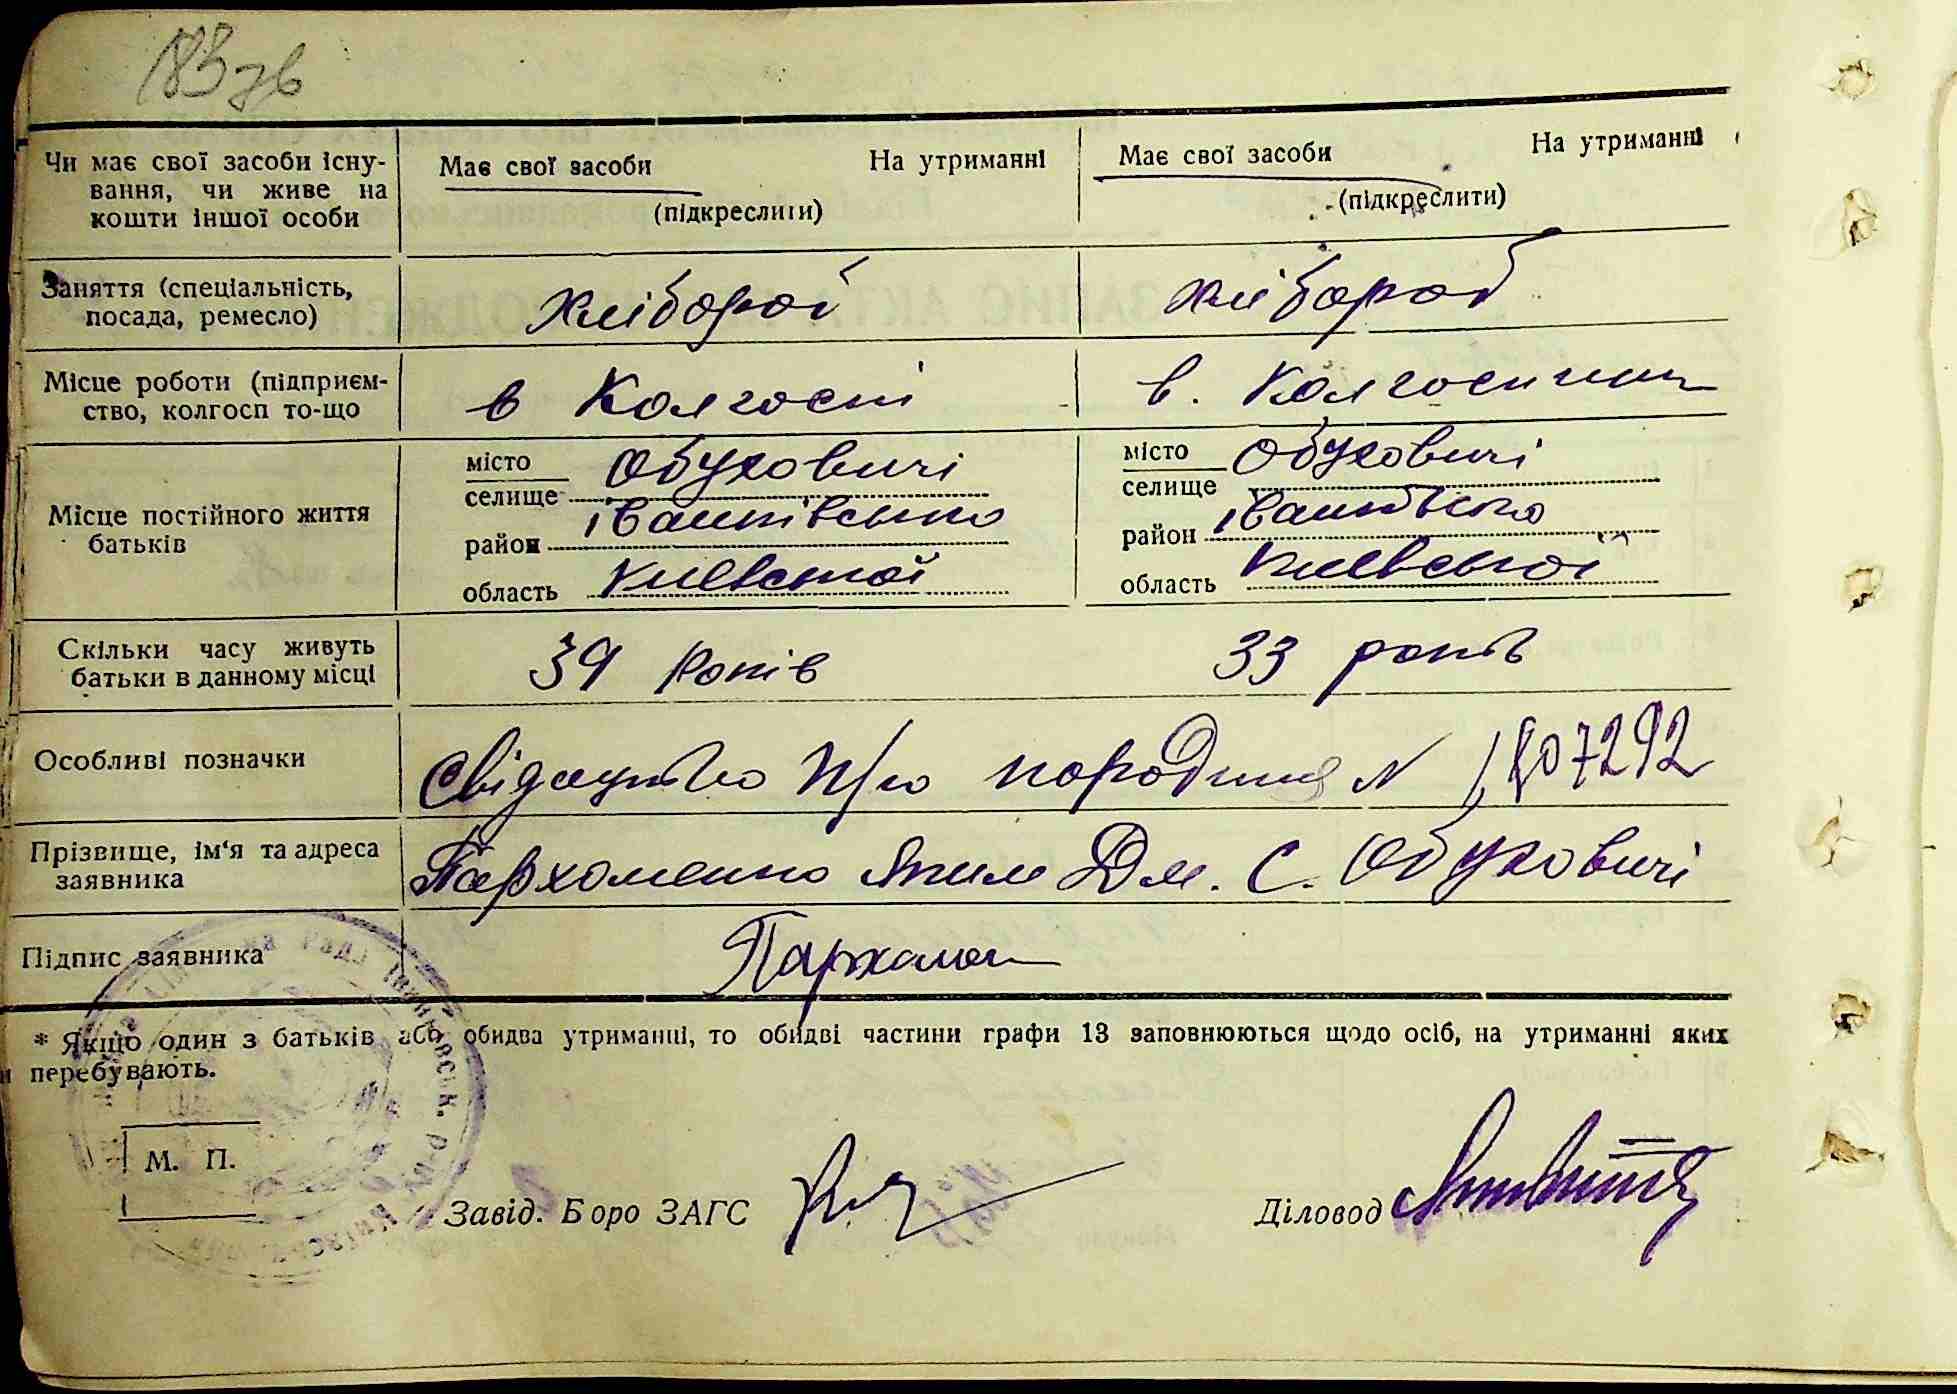 183 зв
Чи має свої засоби існу-
вання, чи живе на
кошти іншої особи
Має свої засоби На утриманні
(підкреслити)
Має свої засоби На утриманні
(підкреслити)
Заняття (спеціальність,
посада, ремесло)
Хлібороб
хлібороб
Місце роботи (підприєм-
ство, колгосп то-що
в Колгоспі
в. Колгоспи
Місце постійного життя
батьків
місто
селище Обуховичі
район Іванківсько
область Київської
місто
селище Обуховичі
район Іванківсько
область Київської
Скільки часу живуть
батьки в данному місці
39 років
33 років
Особливі позначки
Свідоцтво п/ро народження № 1807292
Прізвище, ім'я та адреса
заявника
Пархоменко Яким Дм. С. Обуховичі
Підпис заявника
Пархомен
* Якщо один з батьків або обидва утриманні, то обидві частини графи 13 заповнюються щодо осіб, на утриманні яких
и перебувають.
М. П.
Завід. Боро ЗАГС
Діловод